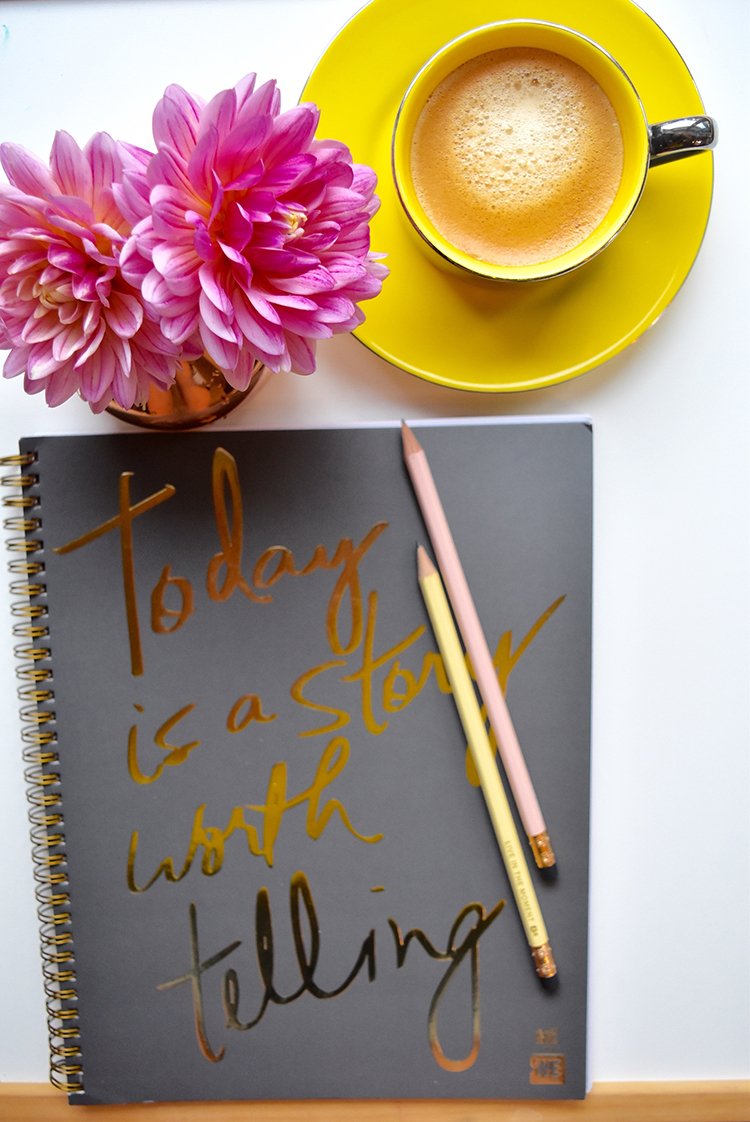 Today
is a story
worth
telling
LIVE IN THE MOMENT